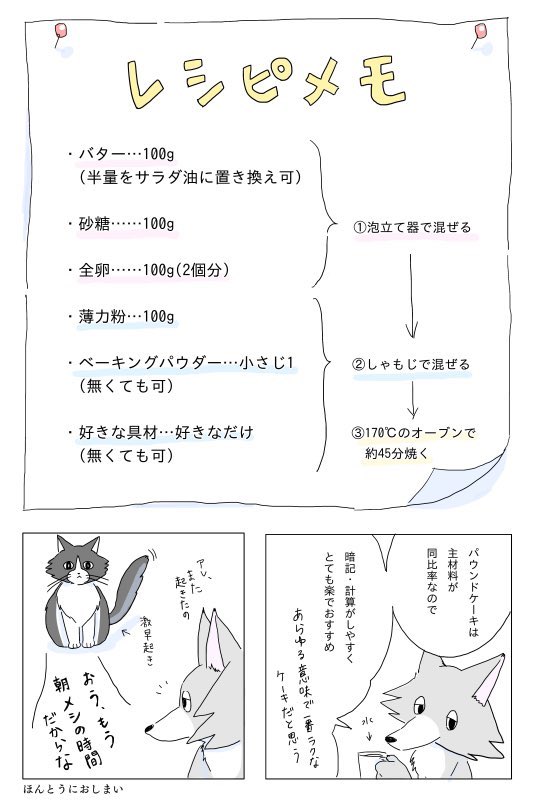 レシピメモ
・バター…100g
(半量をサラダ油に置き換え可)
・砂糖……100g
・全卵……100g(2個分)
①泡立て器で混ぜる
・薄力粉…100g
・ベーキングパウダー…小さじ1
(無くても可)
・好きな具材…好きなだけ
(無くても可)
②しゃもじで混ぜる
③170℃のオーブンで
約45分焼く
パウンドケーキは
主材料が
同比率なので
暗記・計算がしやすく
とても楽でおすすめ
あらゆる意味で一番ラクな
ケーキだと思う
水
アレ、
また
起きたの
激早起き
おう、もう
朝メシの時間
だからな
ほんとうにおしまい